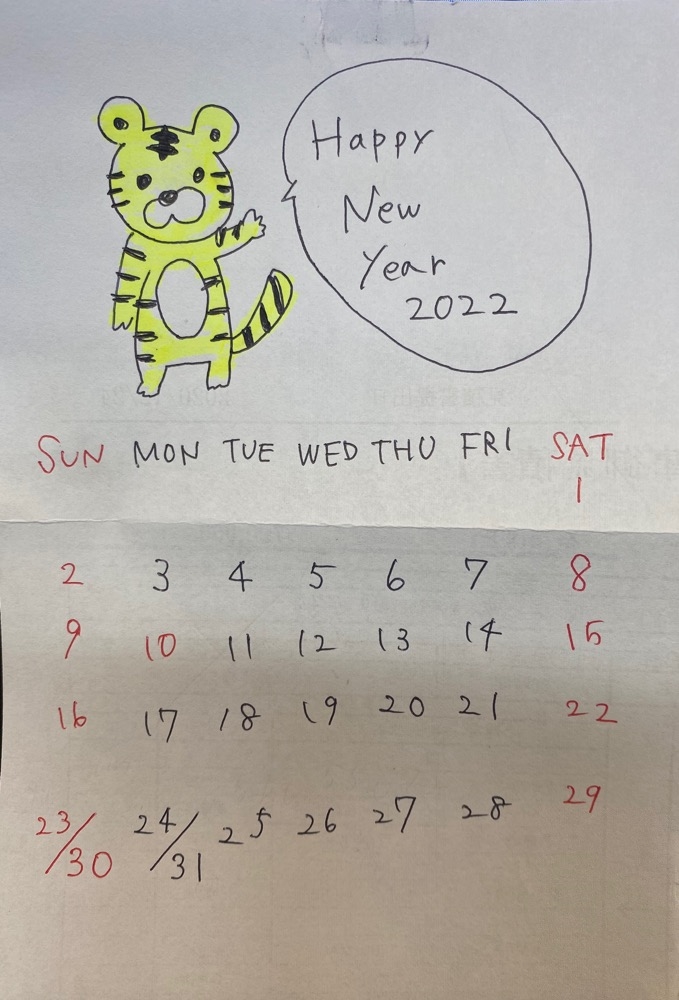 Happy
New
Year
2022
SUN MON TUE WED THU FRI SAT
1
2 3 4 5 6 7 8
9 10 11 12 13 14 15
16 17 18 19 20 21 22
23/30 24/31 25 26 27 28 29